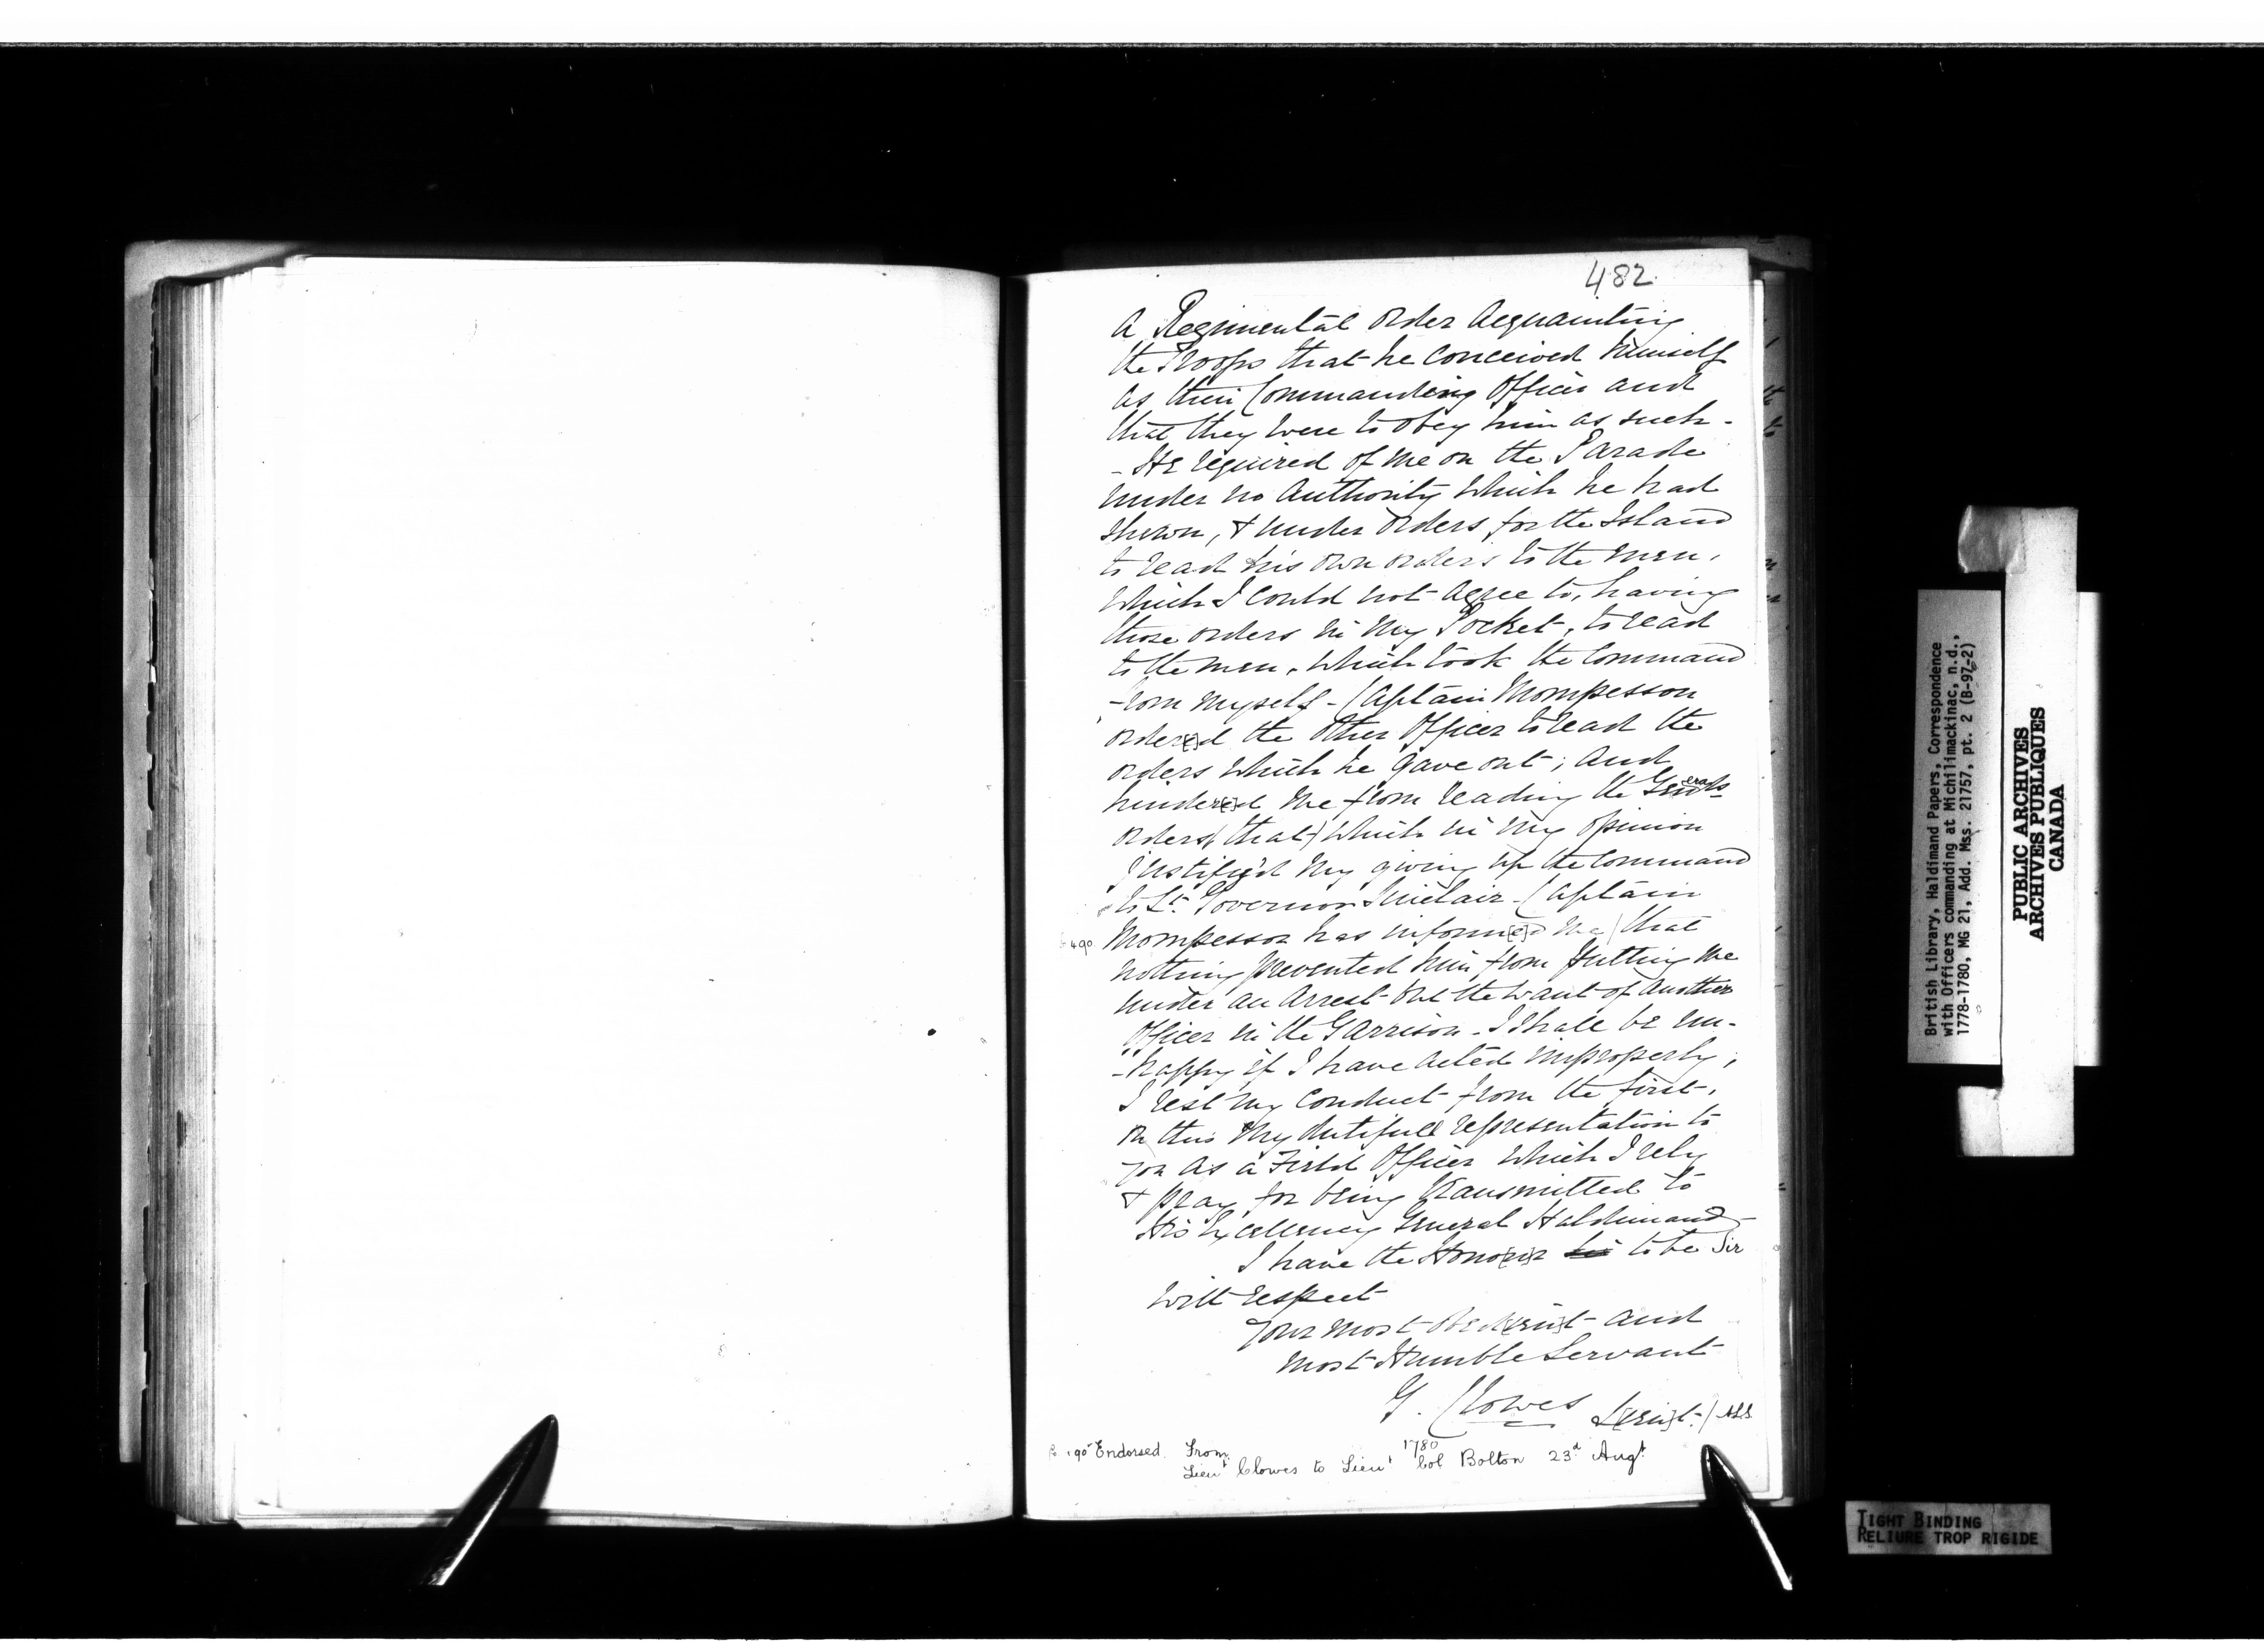 482.
A Regimental Order Acquainting
the Troops that he Conceived himself
as their Commanding Officer and
that they were to obey him as such -
- He required of me on the Parade
under no Authority which he had
shewn, & under orders for the Island
to read his own orders to the men,
which I could not agree to, having
those orders in my Pocket, to read
to the men, which took the Command
from myself - Captain Mompesson
order[e]d the other Officer to read the
orders which he gave out; and
hinder[e]d me from reading the Generals
orders (that) which in my opinion
justify'd my giving up the Command
to Lt. Governor Sinclair - Captain
490 Mompesson has inform[e]d me) that
nothing prevented him from putting me
under an Arrest but the want of another
Officer in the Garrison - I shall be un-
-happy if I have acted improperly;
I rest my conduct from the first,
on this my dutifull representation to
you as a Field Officer which I rely
& pray for being transmitted to
His Excellency General Haldimand -
I have the Hono[u]r to be Sir
with respect
Your most Obed[ien]t and
most Humble Servant
G. Clowes L[ieu]t. / ALS.
490 Endorsed. From
Lieut Clowes to Lieut Col Bolton 23d Augt.
1780
British Library, Haldimand Papers, Correspondence
with Officers commanding at Michilimackinac, n.d.,
1778-1780, MG 21, Add. Mss. 21757, pt. 2 (B-97-2)
PUBLIC ARCHIVES
ARCHIVES PUBLIQUES
CANADA
TIGHT BINDING
RELIURE TROP RIGIDE